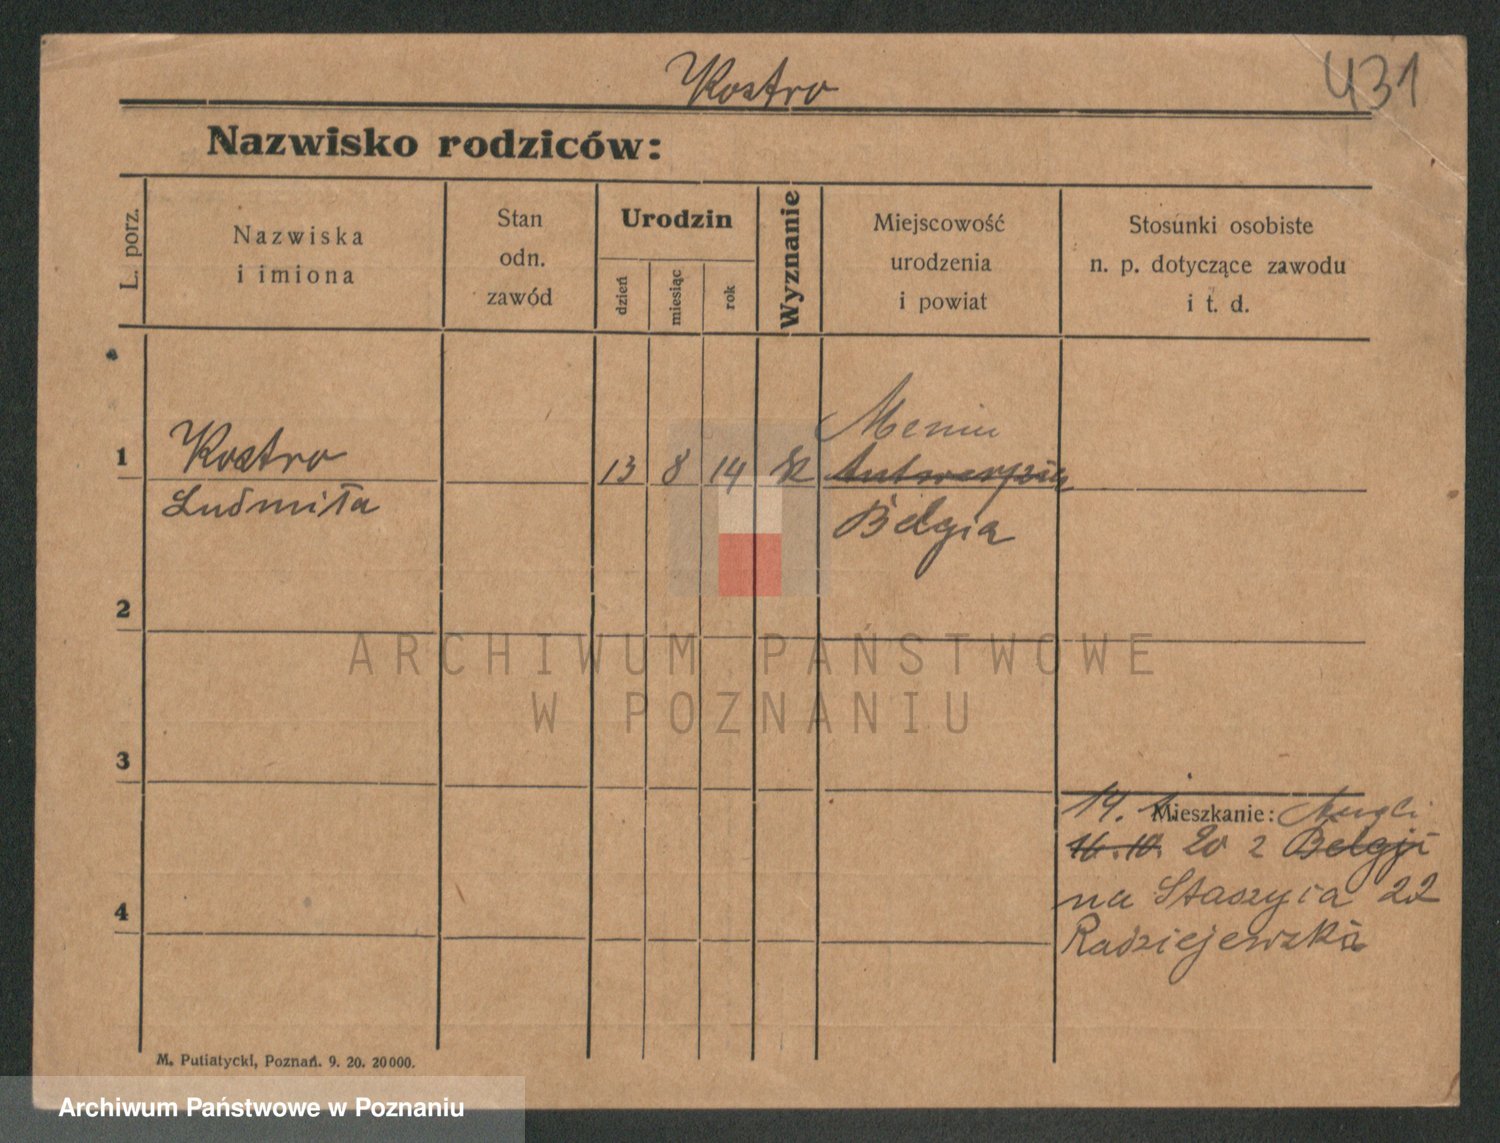 Kostro
431
Nazwisko rodziców:
L. porz.
Nazwiska
i imiona
Stan
odn.
zawód
Urodzin
dzień
miesiąc
rok
Wyznanie
Miejscowość
urodzenia
i powiat
Stosunki osobiste
n. p. dotyczące zawodu
i t. d.
1
Kostro
Ludmiła
13
8
14
k
Antwerpia
Belgia
2
3
4
14. 1. Mieszkanie: Angli
16. 10. 20 z Belgji
na Staszyca 22
Radziejewska
M. Putiatycki, Poznań. 9. 20. 20000.
ARCHIWUM PAŃSTWOWE
W POZNANIU
Archiwum Państwowe w Poznaniu